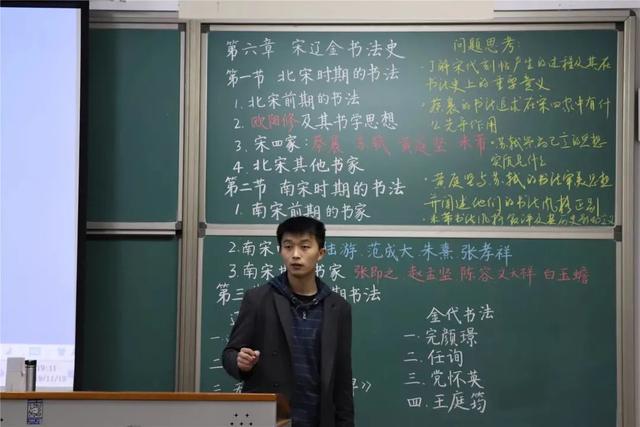 第六章 宋辽金书法史
第一节 北宋时期的书法
1.北宋前期的书法
2.欧阳修及其书学思想
3.宋四家:蔡襄 苏轼 黄庭坚 米芾
4.北宋其他书家
第二节 南宋时期的书法
1.南宋前期的书家
2.南宋 游.范成大.朱熹.张孝祥
3.南宋 书家 张即之.赵孟坚.陈容 文天祥 白玉蟾
第三 期书法
问题思考:
·了解宋代刻帖产生的过程及其在
书法史上的重要意义
·蔡襄的书法追求在宋四家中有什
么先导作用
·苏轼
实质是什么
·黄庭坚与苏轼的书法审美思想
并阐述他们的书法风格区别
·米芾书法风格
金代书法
一.完颜璟
二.任询
三.党怀英
四.王庭筠
19:11